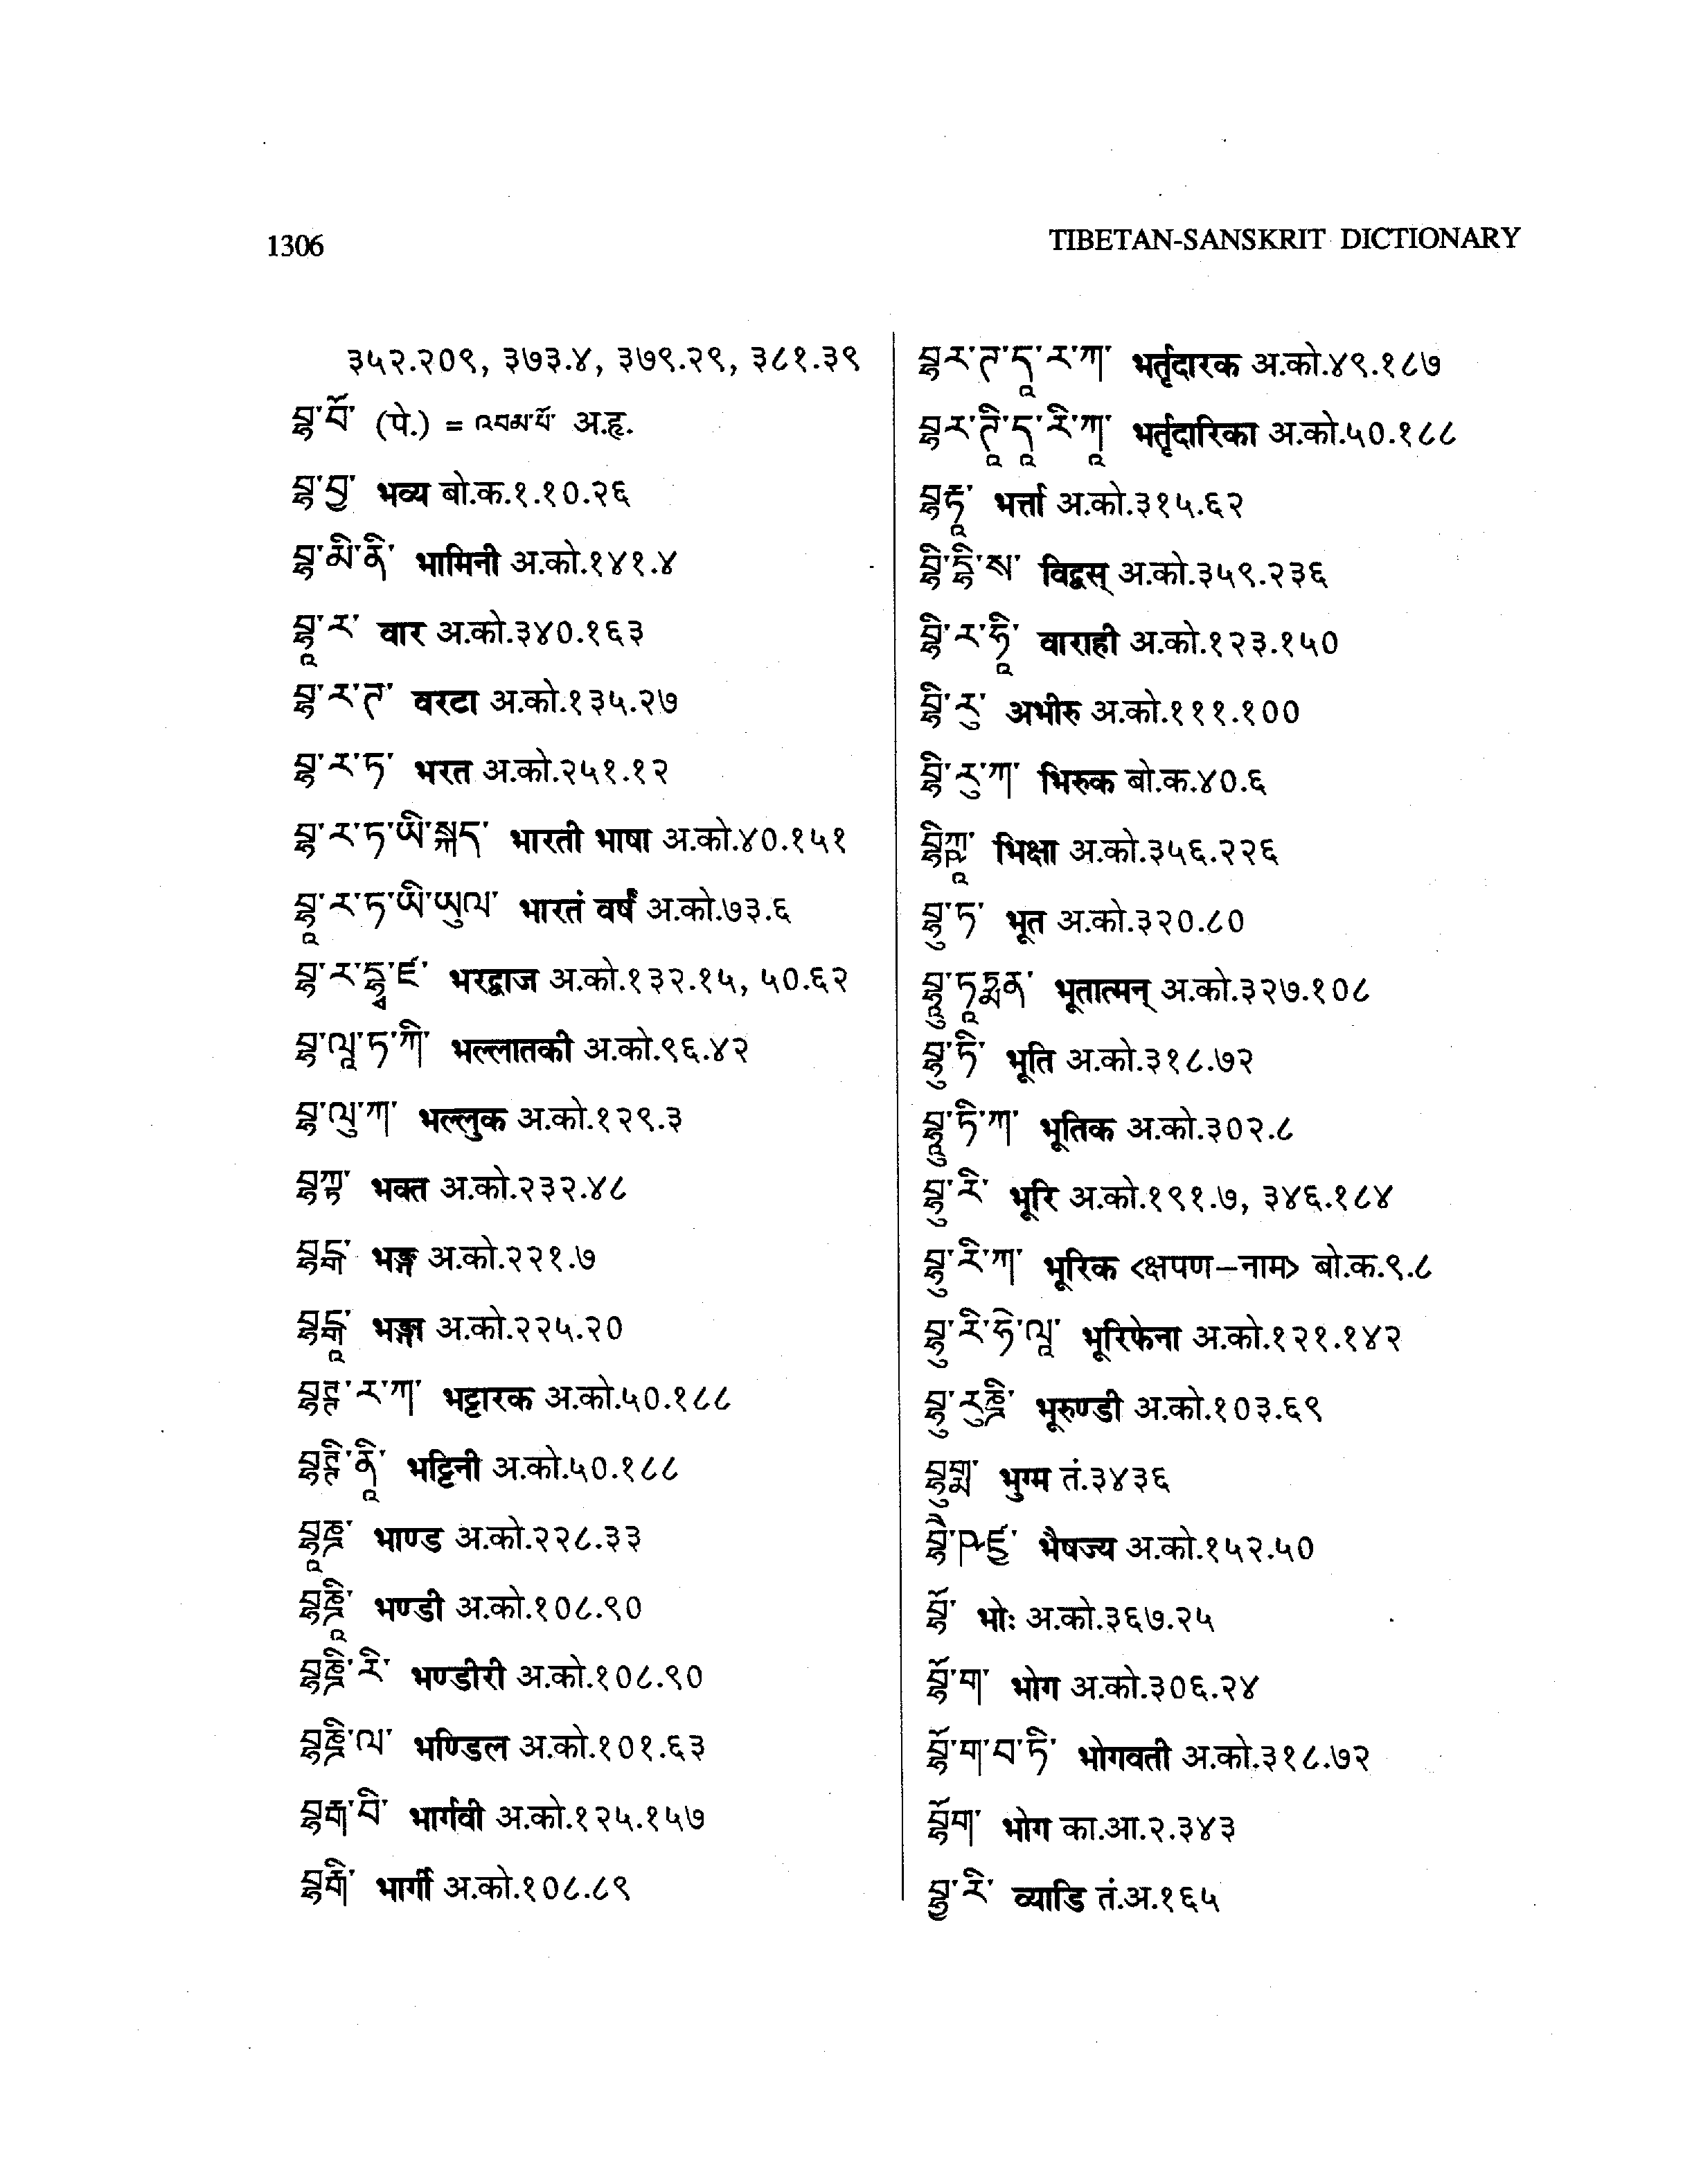 1306
TIBETAN-SANSKRIT DICTIONARY
३५२.२०९, ३७३.४, ३७९.२९, ३८१.३९
བྷ་བོ་ (पे.) = འབམ་པོ་ अ.हृ.
བྷ་བྱ་ भव्य बो.क.१.१०.२६
བྷ་མི་ནི་ भामिनी अ.को.१४१.४
བྷཱ་ར་ वार अ.को.३४०.१६३
བྷ་ར་ཊ་ वरटा अ.को.१३५.२७
བྷ་ར་ཏ་ भरत अ.को.२५१.१२
བྷ་ར་ཏ་ཡི་སྐད་ भारती भाषा अ.को.४०.१५१
བྷཱ་ར་ཏ་ཡི་ཡུལ་ भारतं वर्षं अ.को.७३.६
བྷ་ར་དྷྭ་ཛ་ भरद्वाज अ.को.१३२.१५, ५०.६२
བྷ་ལཱ་ཏ་ཀི་ भल्लातकी अ.को.९६.४२
བྷ་ལུ་ཀ་ भल्लुक अ.को.१२९.३
བྷཀྟ་ भक्त अ.को.२३२.४८
བྷངྒ་ भङ्ग अ.को.२२१.७
བྷངྒཱ་ भङ्गा अ.को.२२५.२०
བྷཊྚ་ར་ཀ་ भट्टारक अ.को.५०.१८८
བྷཊྚི་ནཱི་ भट्टिनी अ.को.५०.१८८
བྷཱཎྜ་ भाण्ड अ.को.२२८.३३
བྷཎྜཱི་ भण्डी अ.को.१०८.९०
བྷཎྜི་རི་ भण्डीरी अ.को.१०८.९०
བྷཎྜི་ལ་ भण्डिल अ.को.१०१.६३
བྷརྒ་བི་ भार्गवी अ.को.१२५.१५७
བྷརྒི་ भार्गी अ.को.१०८.८९
བྷར་ཊ་དཱ་ར་ཀ་ भर्तृदारक अ.को.४९.१८७
བྷར་ཊཱི་དཱ་རི་ཀཱ་ भर्तृदारिका अ.को.५०.१८८
བྷརྟཱ་ भर्त्ता अ.को.३१५.६२
བྷི་དྷི་ས་ विद्वस् अ.को.३५९.२३६
བྷི་ར་ཧཱི་ वाराही अ.को.१२३.१५०
བྷི་རུ་ अभीरु अ.को.१११.१००
བྷི་རུ་ཀ་ भिरुक बो.क.४०.६
བྷིཀྵཱ་ भिक्षा अ.को.३५६.२२६
བྷུ་ཏ་ भूत अ.को.३२०.८०
བྷཱུ་ཏཱཏྨན་ भूतात्मन् अ.को.३२७.१०८
བྷུ་ཏི་ भूति अ.को.३१८.७२
བྷཱུ་ཏི་ཀ་ भूतिक अ.को.३०२.८
བྷུ་རི་ भूरि अ.को.१९१.७, ३४६.१८४
བྷུ་རི་ཀ་ भूरिक <क्षपण-नाम> बो.क.९.८
བྷུ་རི་ཧེ་ལཱ་ भूरिफेना अ.को.१२१.१४२
བྷུ་རུཎྜི་ भूरुण्डी अ.को.१०३.६९
བྷུགྨ་ भुग्म तं.३४३६
བྷཻ་ཥཛྱ་ भैषज्य अ.को.१५२.५०
བྷོ་ भोः अ.को.३६७.२५
བྷོ་ག་ भोग अ.को.३०६.२४
བྷོ་ག་བ་ཏི་ भोगवती अ.को.३१८.७२
བྷོག་ भोग का.आ.२.३४३
བྷྱ་རི་ व्याडि तं.अ.१६५